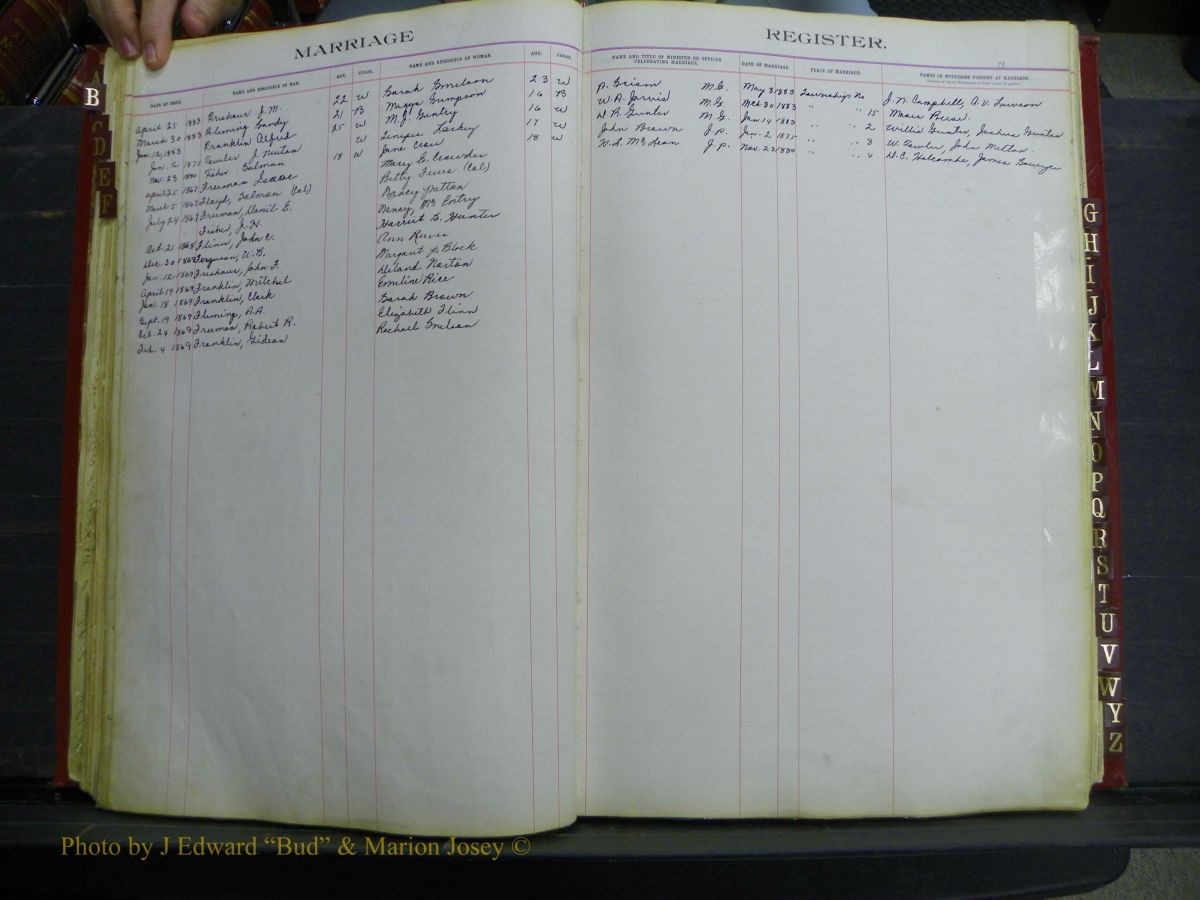 MARRIAGE REGISTER.
DATE OF ISSUE. NAME AND RESIDENCE OF MAN. AGE. COLOR. NAME AND RESIDENCE OF WOMAN. AGE. COLOR. NAME AND TITLE OF MINISTER OR OFFICER CELEBRATING MARRIAGE. DATE OF MARRIAGE. PLACE OF MARRIAGE. NAMES OF WITNESSES PRESENT AT MARRIAGE.
April 25 1883 J. M. 22 W Sarah 23 W M.G. May 3 1883 Township No J. N. Campbell, A. V. Lawson
March 30 1883 Fleming Gandy 21 B 16 B W. A. Jarvis M.G. Mch 30 1883 " " 15
Jan. 12, 1883 Franklin Alfred 25 W M. J. Gentry 16 W W. P. Gunter M.G. Jan 14 1883 " " 2 Willis Gunter, Gunter
Jan. 2 1875 Fowler J. Newton W Lackey 17 W John Brown J.P. Jan. 2 1875 " " 8 W. Fowler, John
Nov. 23 1880 Fisher Salman 18 W Jane 18 W J.P. Nov. 23 1880 " " 4 Holcombe, James Sawyer
April 25 1867 Freeman Isaac Mary E. Crowder
March 5 1867 Floyd, Salman (Col) Betty (Col)
July 24 1867 Freeman, E. Nancy Patton
Fisher, J. H. Nancy Mc Entry
Oct. 21 1868 Flinn, John C. Harriet B. Hunter
Dec. 30 1868 Ferguson, W. B. Ann
Jan. 12 1869 John F. Margaret Block
April 19 1869 Franklin, Mitchel Norton
Jan. 18 1869 Franklin, Clark Emeline Rice
Sept. 19 1869 Fleming, A. A. Sarah Brown
Oct. 24 1869 Freeman, Robert R. Elizabeth Flinn
Feb. 4 1869 Franklin, Gideon Rachael
B
D
E
F
G
H
I
J
K
L
M
N
O
P
Q
R
S
T
U
V
W
Y
Z
Photo by J Edward “Bud” & Marion Josey ©